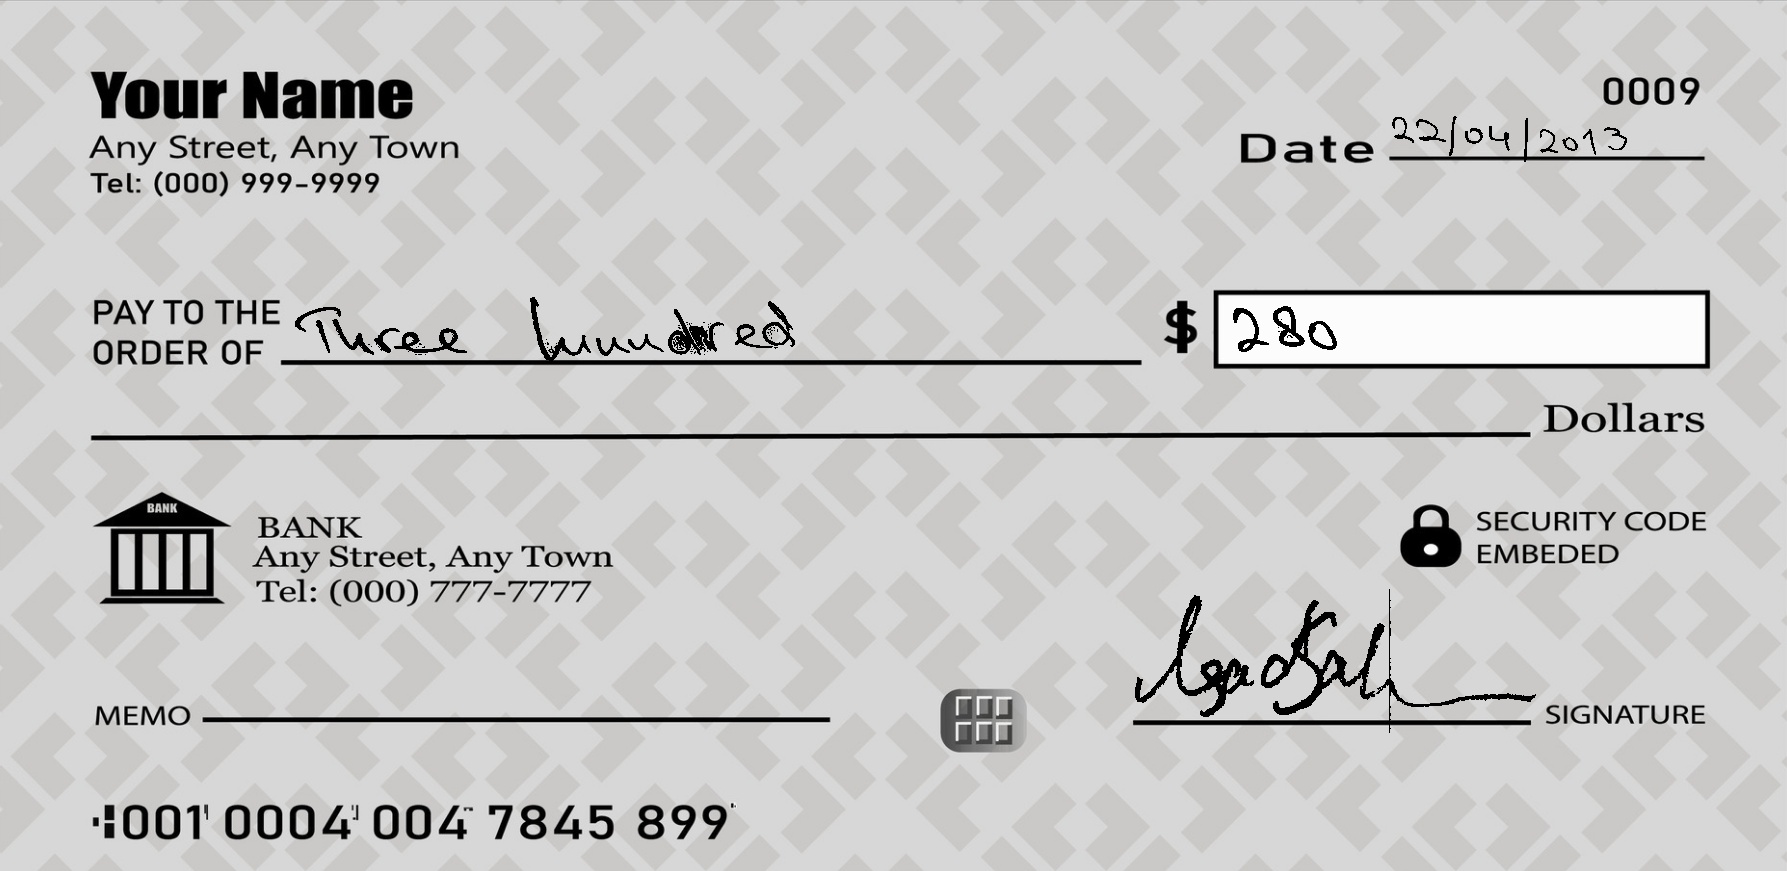 Your Name
Any Street, Any Town
Tel: (000) 999-9999
0009
Date 22/04/2013
PAY TO THE
ORDER OF Three hundred
$ 280
Dollars
BANK
BANK
Any Street, Any Town
Tel: (000) 777-7777
SECURITY CODE
EMBEDED
MEMO
SIGNATURE
001 0004 004 7845 899